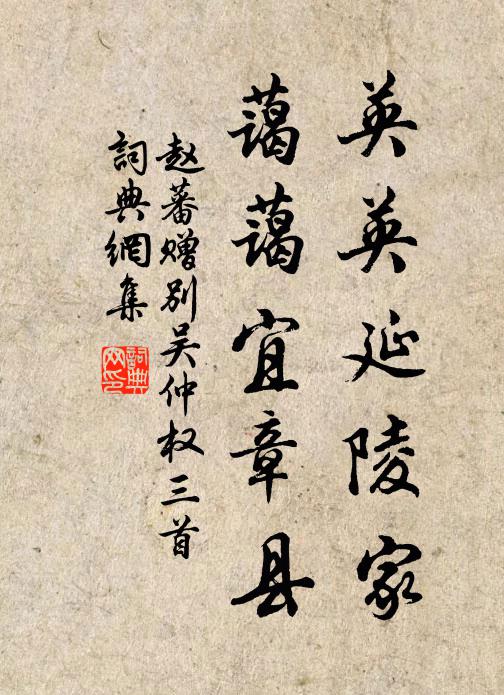 英英延陵家
蔼蔼宜章县
赵蕃赠别吴仲权三首
詞典網集
詞典网印